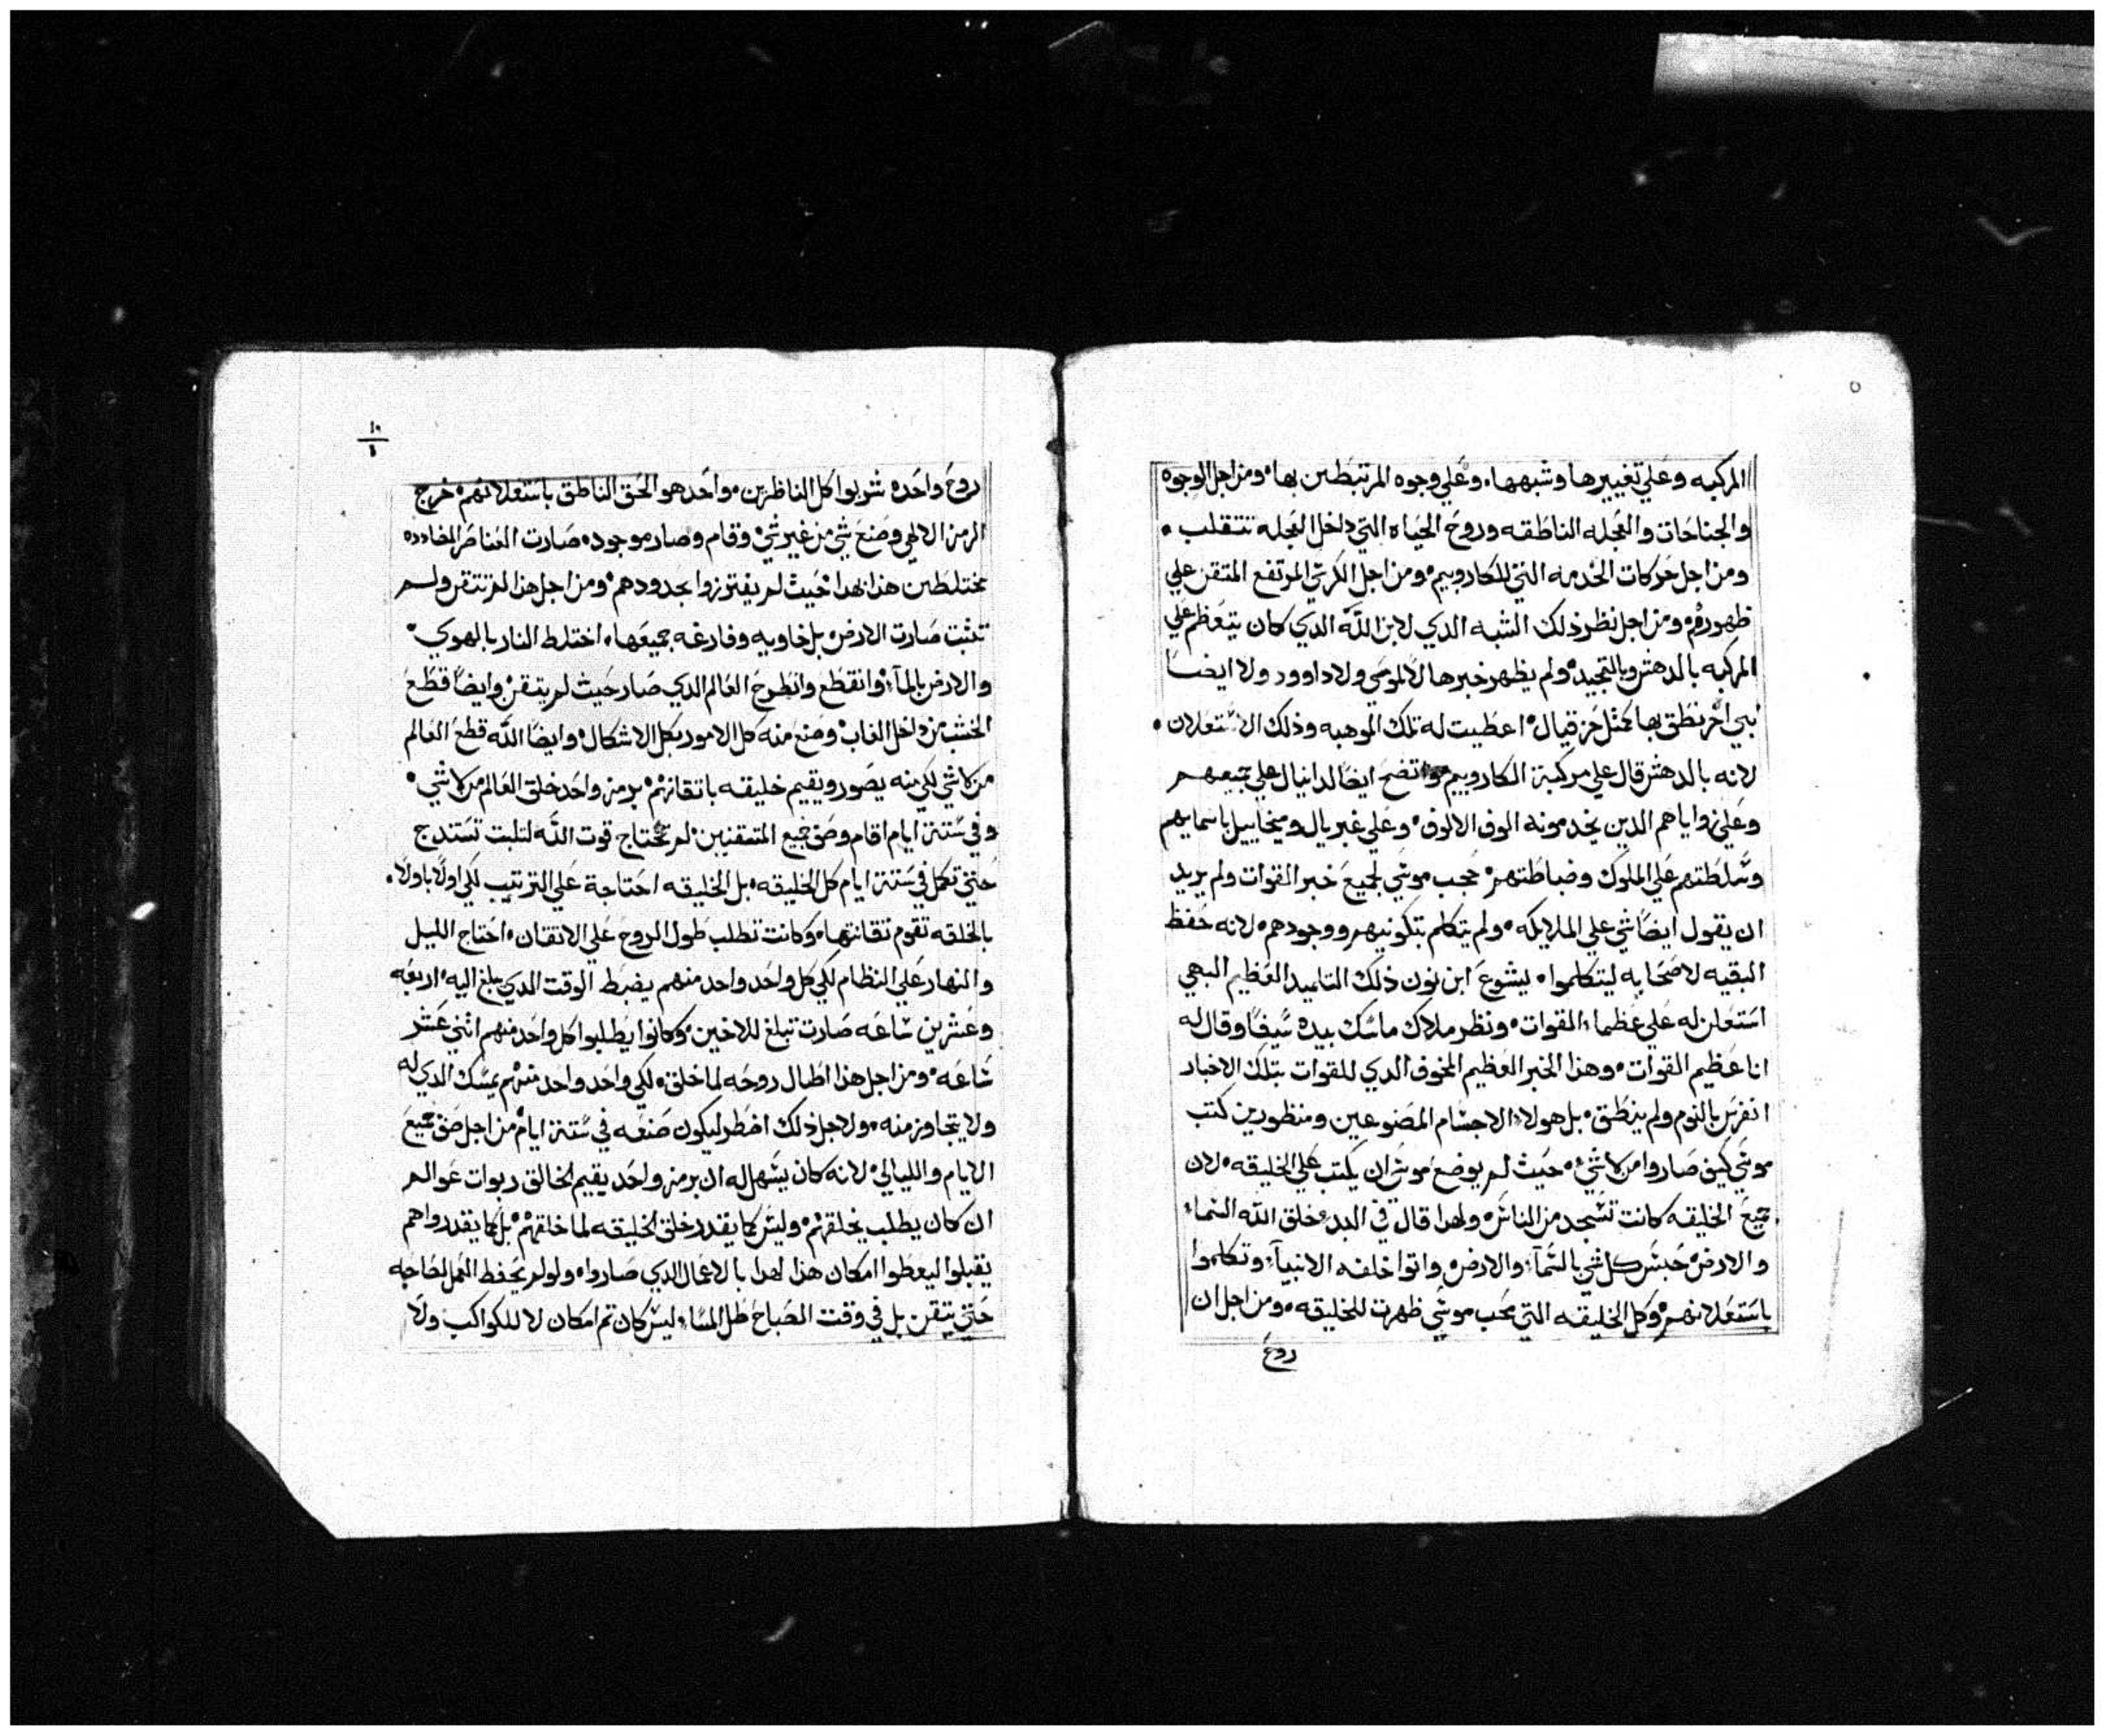 المركبه وعلي تغييرها وشبهها٠ وعلي وجوه المرتبطين بها٠ ومن اجل الوجوه
والجناحات والعجله الناطقه وروح الحياه التي داخل العجله تتقلب٠
ومن اجل حركات الخدمه التي للكاروبيم٠ ومن اجل الكرسي المرتفع المتقن علي
ظهورهم٠ ومن اجل نظر ذلك الشبه الدي لابن الله الدي كان يتعظم علي
المركبه بالدهش وبالتجيد٠ ولم يظهر خبرها لا لموسي ولا داوود ولا ايضا
نبي اخر نطق بها كمثل حزقيال٠ اعطيت له تلك الموهبه وذلك الاستعلان٠
لانه بالدهش قال علي مركبة الكاروبيم واتضح ايضا لدانيال علي جميعهم
وعلي واياهم الدين يخدمونه الوف الالوف٠ وعلي غبريال وميخاييل باسمايهم
وسلطتهم علي الملوك وضباطتهم٠ حجب موسي لجميع خبر القوات ولم يريد
ان يقول ايضا شي علي الملايكه٠ ولم يتكلم بتكونيهم ووجودهم٠ لانه حفظ
البقيه لاصحابه ليتكلموا٠ يشوع ابن نون ذلك التلميد العظيم البهي
استعلن له علي عظما القوات٠ ونظر ملاك ماسك بيده سيفا وقال له
انا عظيم القوات٠ وهذا الخبر العظيم المخوف الدي للقوات بتلك الاخبار
انفرس بالنوم ولم ينطق٠ بل هولاء الاجسام المصنوعين ومنظورين كتب
موسي كيف صاروا من لاشي٠ حيث لم يوضع موسي ان يكتب علي الخليقه٠ لان
جميع الخليقه كانت تسجد من الناس٠ ولهدا قال في البدء خلق الله السماء
والارض٠ حبس كل شي بالسمآء والارض٠ واتوا خلفه الانبيآء وتكلموا
باستعلانهم٠ وكل الخليقه التي حجب موسي ظهرت للخليقه٠ ومن اجل ان
روح
١٠
روح واحده شربوا كل الناظرين٠ واحد هو الحق الناطق باستعلانهم٠ خرج
الرمز الالهي وصنع شي من غير شي٠ وقام وصار موجود٠ صارت العناصر المضادده
مختلطين هذا بهدا حيث لم يفترزوا بحدودهم٠ ومن اجل هذا لم تتقن ولم
تثبت صارت الارض٠ بل خاويه وفارغه جميعها٠ اختلط النار بالهوي٠
والارض بالمآء٠ وانقطع وانطرح العالم الدي صار حيث لم يتقن٠ وايضا قطع
الخشب من داخل الغاب٠ وصنع منه كل الامور بكل الاشكال٠ وايضا الله قطع العالم
من لاشي لكي منه يصور ويقيم خليقه باتقانهم٠ برمز واحد خلق العالم من لاشي٠
وفي ستة ايام اقام وصف جميع المتقنين٠ لم تحتاج قوت الله لتلبت تستدج
حتي تكمل في ستة ايام كل الخليقه٠ بل الخليقه احتاجة علي الترتيب لكي اولا باولا٠
بالخلقه تقوم تقانتها٠ وكانت تطلب طول الروح علي الاتقان٠ احتاج الليل
والنهار علي النظام لكي كل واحد واحد منهم يضبط الوقت الدي يبلغ اليه٠ اربعه
وعشرين ساعه صارت تبلغ للاخين٠ وكانوا يطلبوا كل واحد منهم اثني عشر
ساعه٠ ومن اجل هذا اطال روحه لما خلق٠ لكي واحد واحد منهم يمسك الدي له
ولا يتجاوز منه٠ ولاجل ذلك اضطر ليكون صنعه في ستة ايام٠ من اجل صف جميع
الايام والليالي٠ لانه كان يسهل له ان برمز واحد يقيم الخالق ربوات عوالم
ان كان يطلب يخلقهم٠ وليس كما يقدر خلق الخليقه لما خلقهم٠ بل كما يقدروا هم
يقبلوا ليعطوا امكان هذا لهدا بالاعمال الدي صاروا٠ ولو لم يحفظ العمل لصاحبه
حتي يتقن بل في وقت الصباح ظل المساء٠ ليس كان تم امكان لا للكواكب ولا